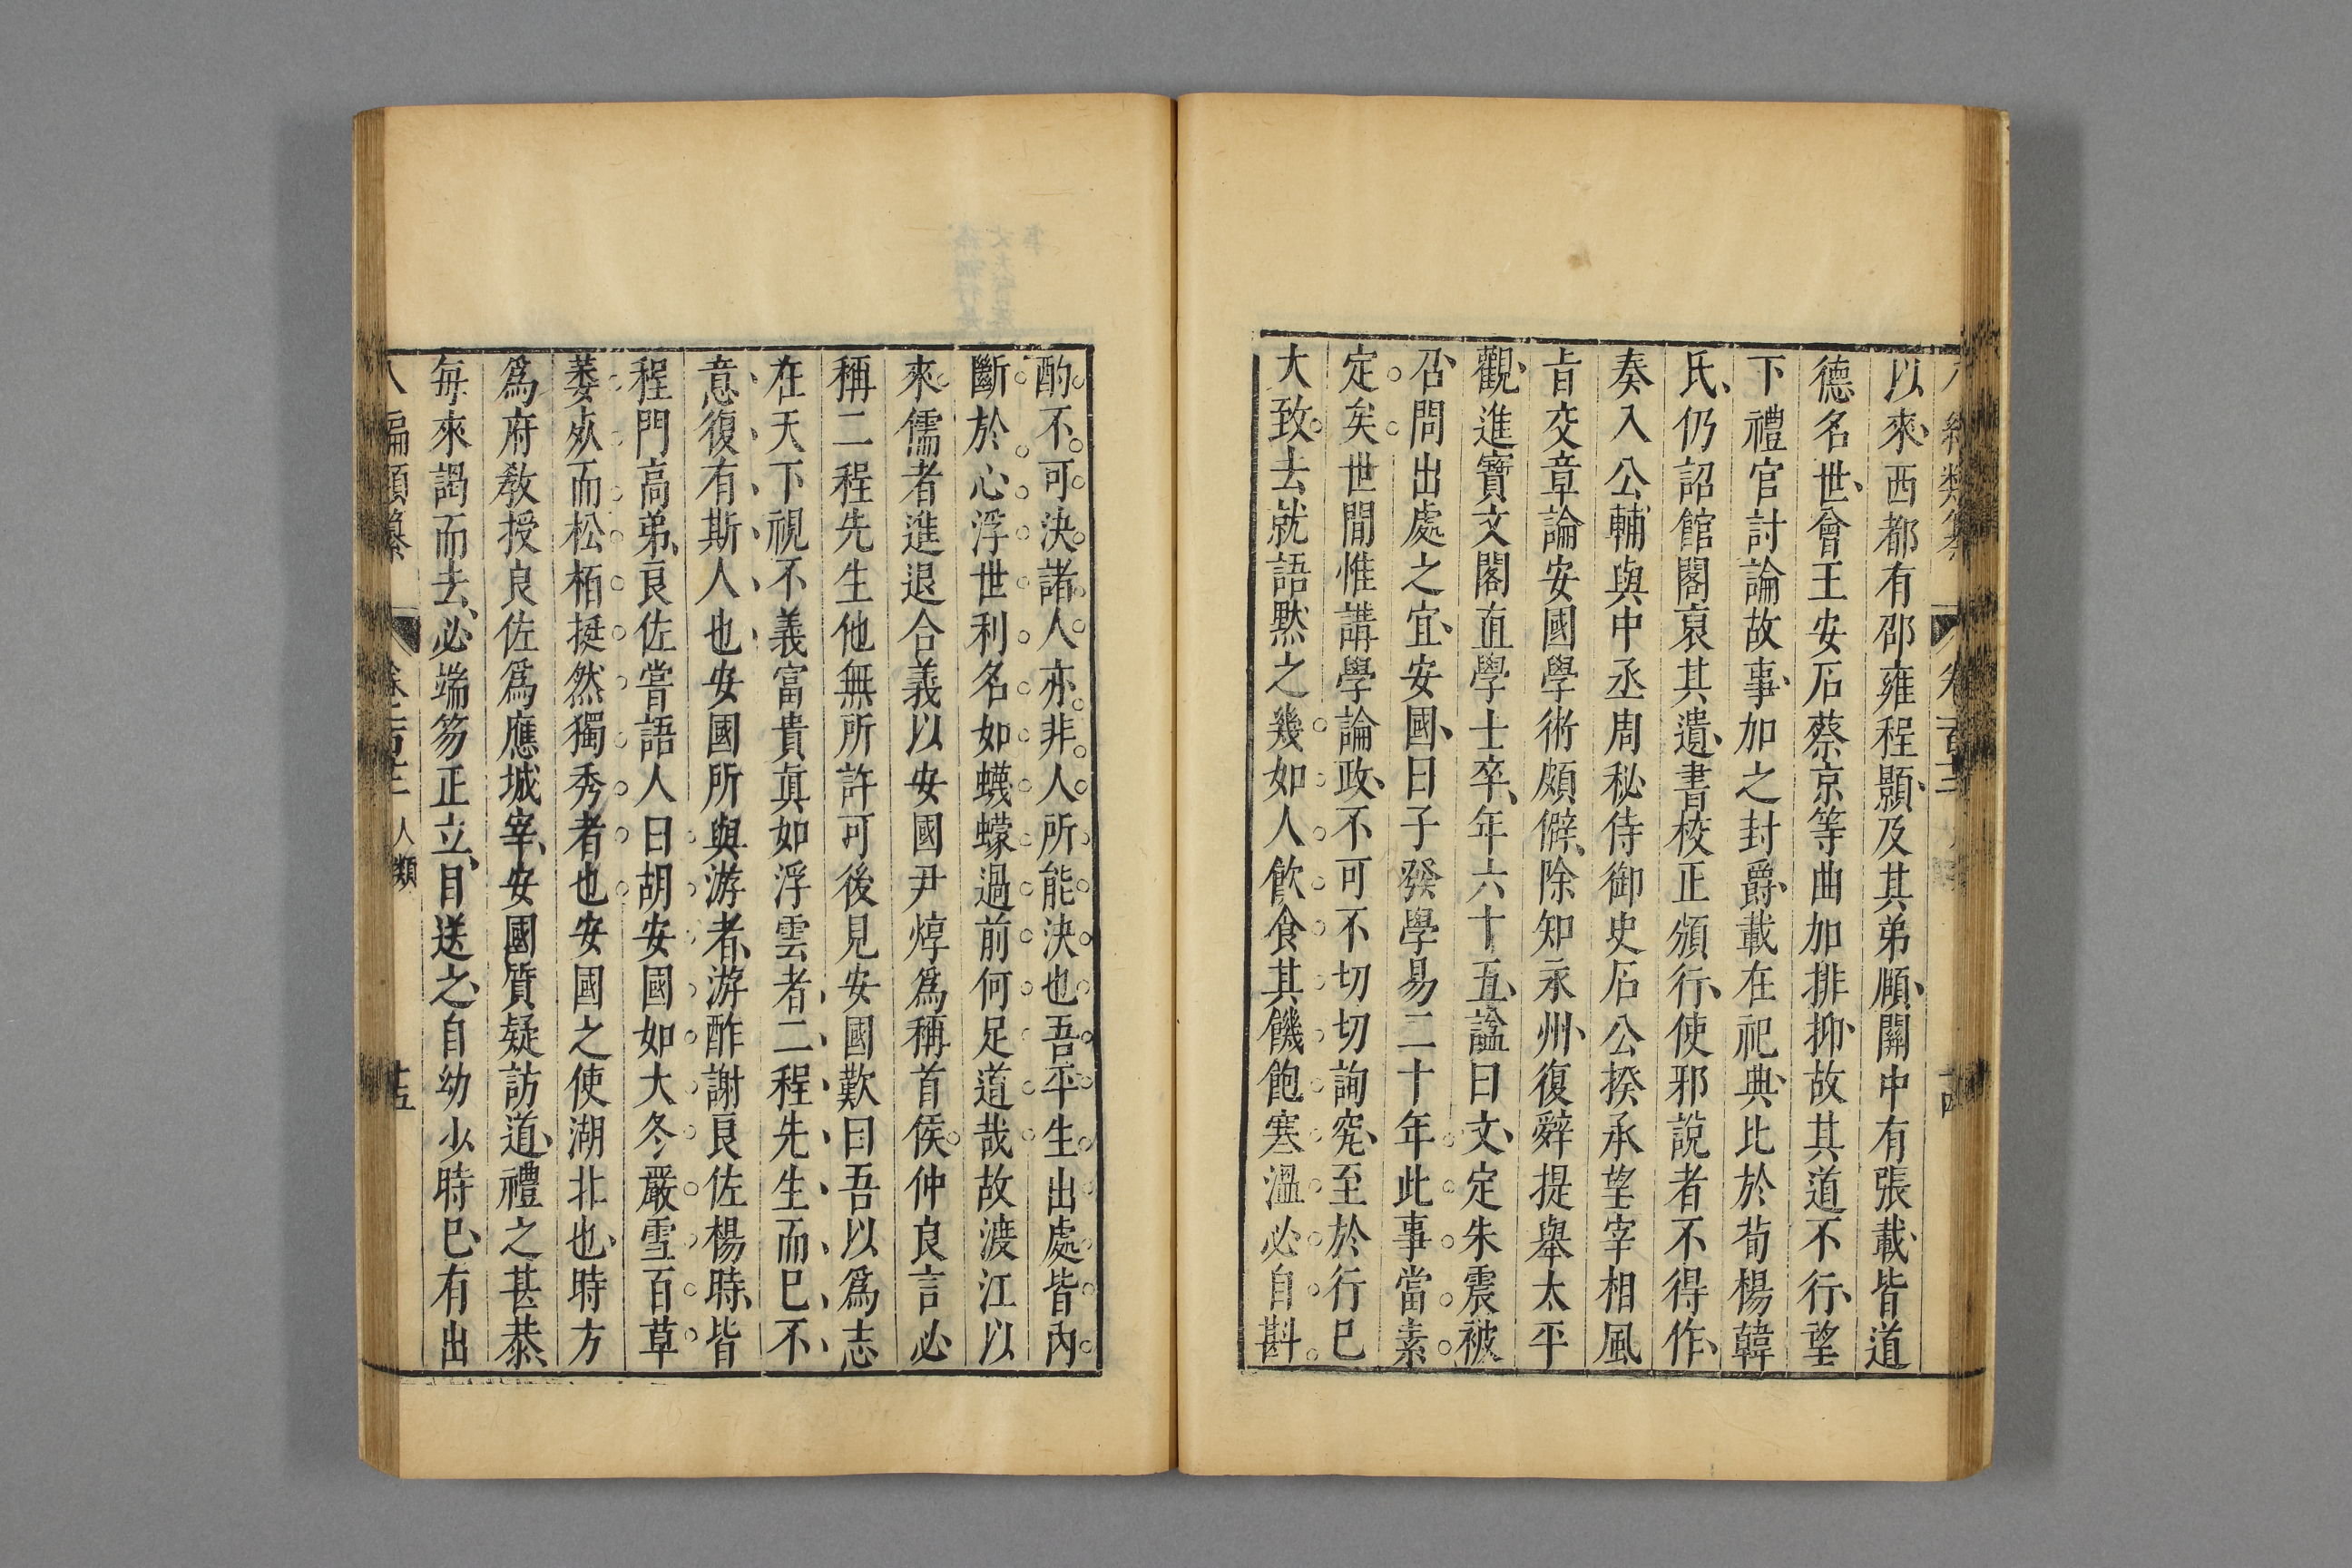 以來西都有邵雍程顥及其弟頤關中有張載皆道
德名世會王安石蔡京等曲加排抑故其道不行望
下禮官討論故事加之封爵載在祀典比於荀楊韓
氏仍詔館閣裒其遺書校正頒行使邪說者不得作
奏入公輔與中丞周秘侍御史石公揆承望宰相風
旨交章論安國學術頗僻除知永州復辭提舉太平
觀進寶文閣直學士卒年六十五諡曰文定朱震被
召問出處之宜安國曰子發學易二十年此事當素
定矣世間惟講學論政不可不切切詢究至於行已
大致去就語默之幾如人飲食其饑飽寒溫必自斟
酌不可決諸人亦非人所能決也吾平生出處皆內
斷於心浮世利名如蠛蠓過前何足道哉故渡江以
來儒者進退合義以安國尹焞爲稱首侯仲良言必
稱二程先生他無所許可後見安國歎曰吾以爲志
在天下視不義富貴真如浮雲者二程先生而已不
意復有斯人也安國所與游者游酢謝良佐楊時皆
程門高弟良佐嘗語人曰胡安國如大冬嚴雪百草
萎死而松栢挺然獨秀者也安國之使湖北也時方
爲府教授良佐爲應城宰安國質疑訪道禮之甚恭
每來謁而去必端笏正立目送之自幼少時已有出
八編類纂 卷百十三 人類 十五